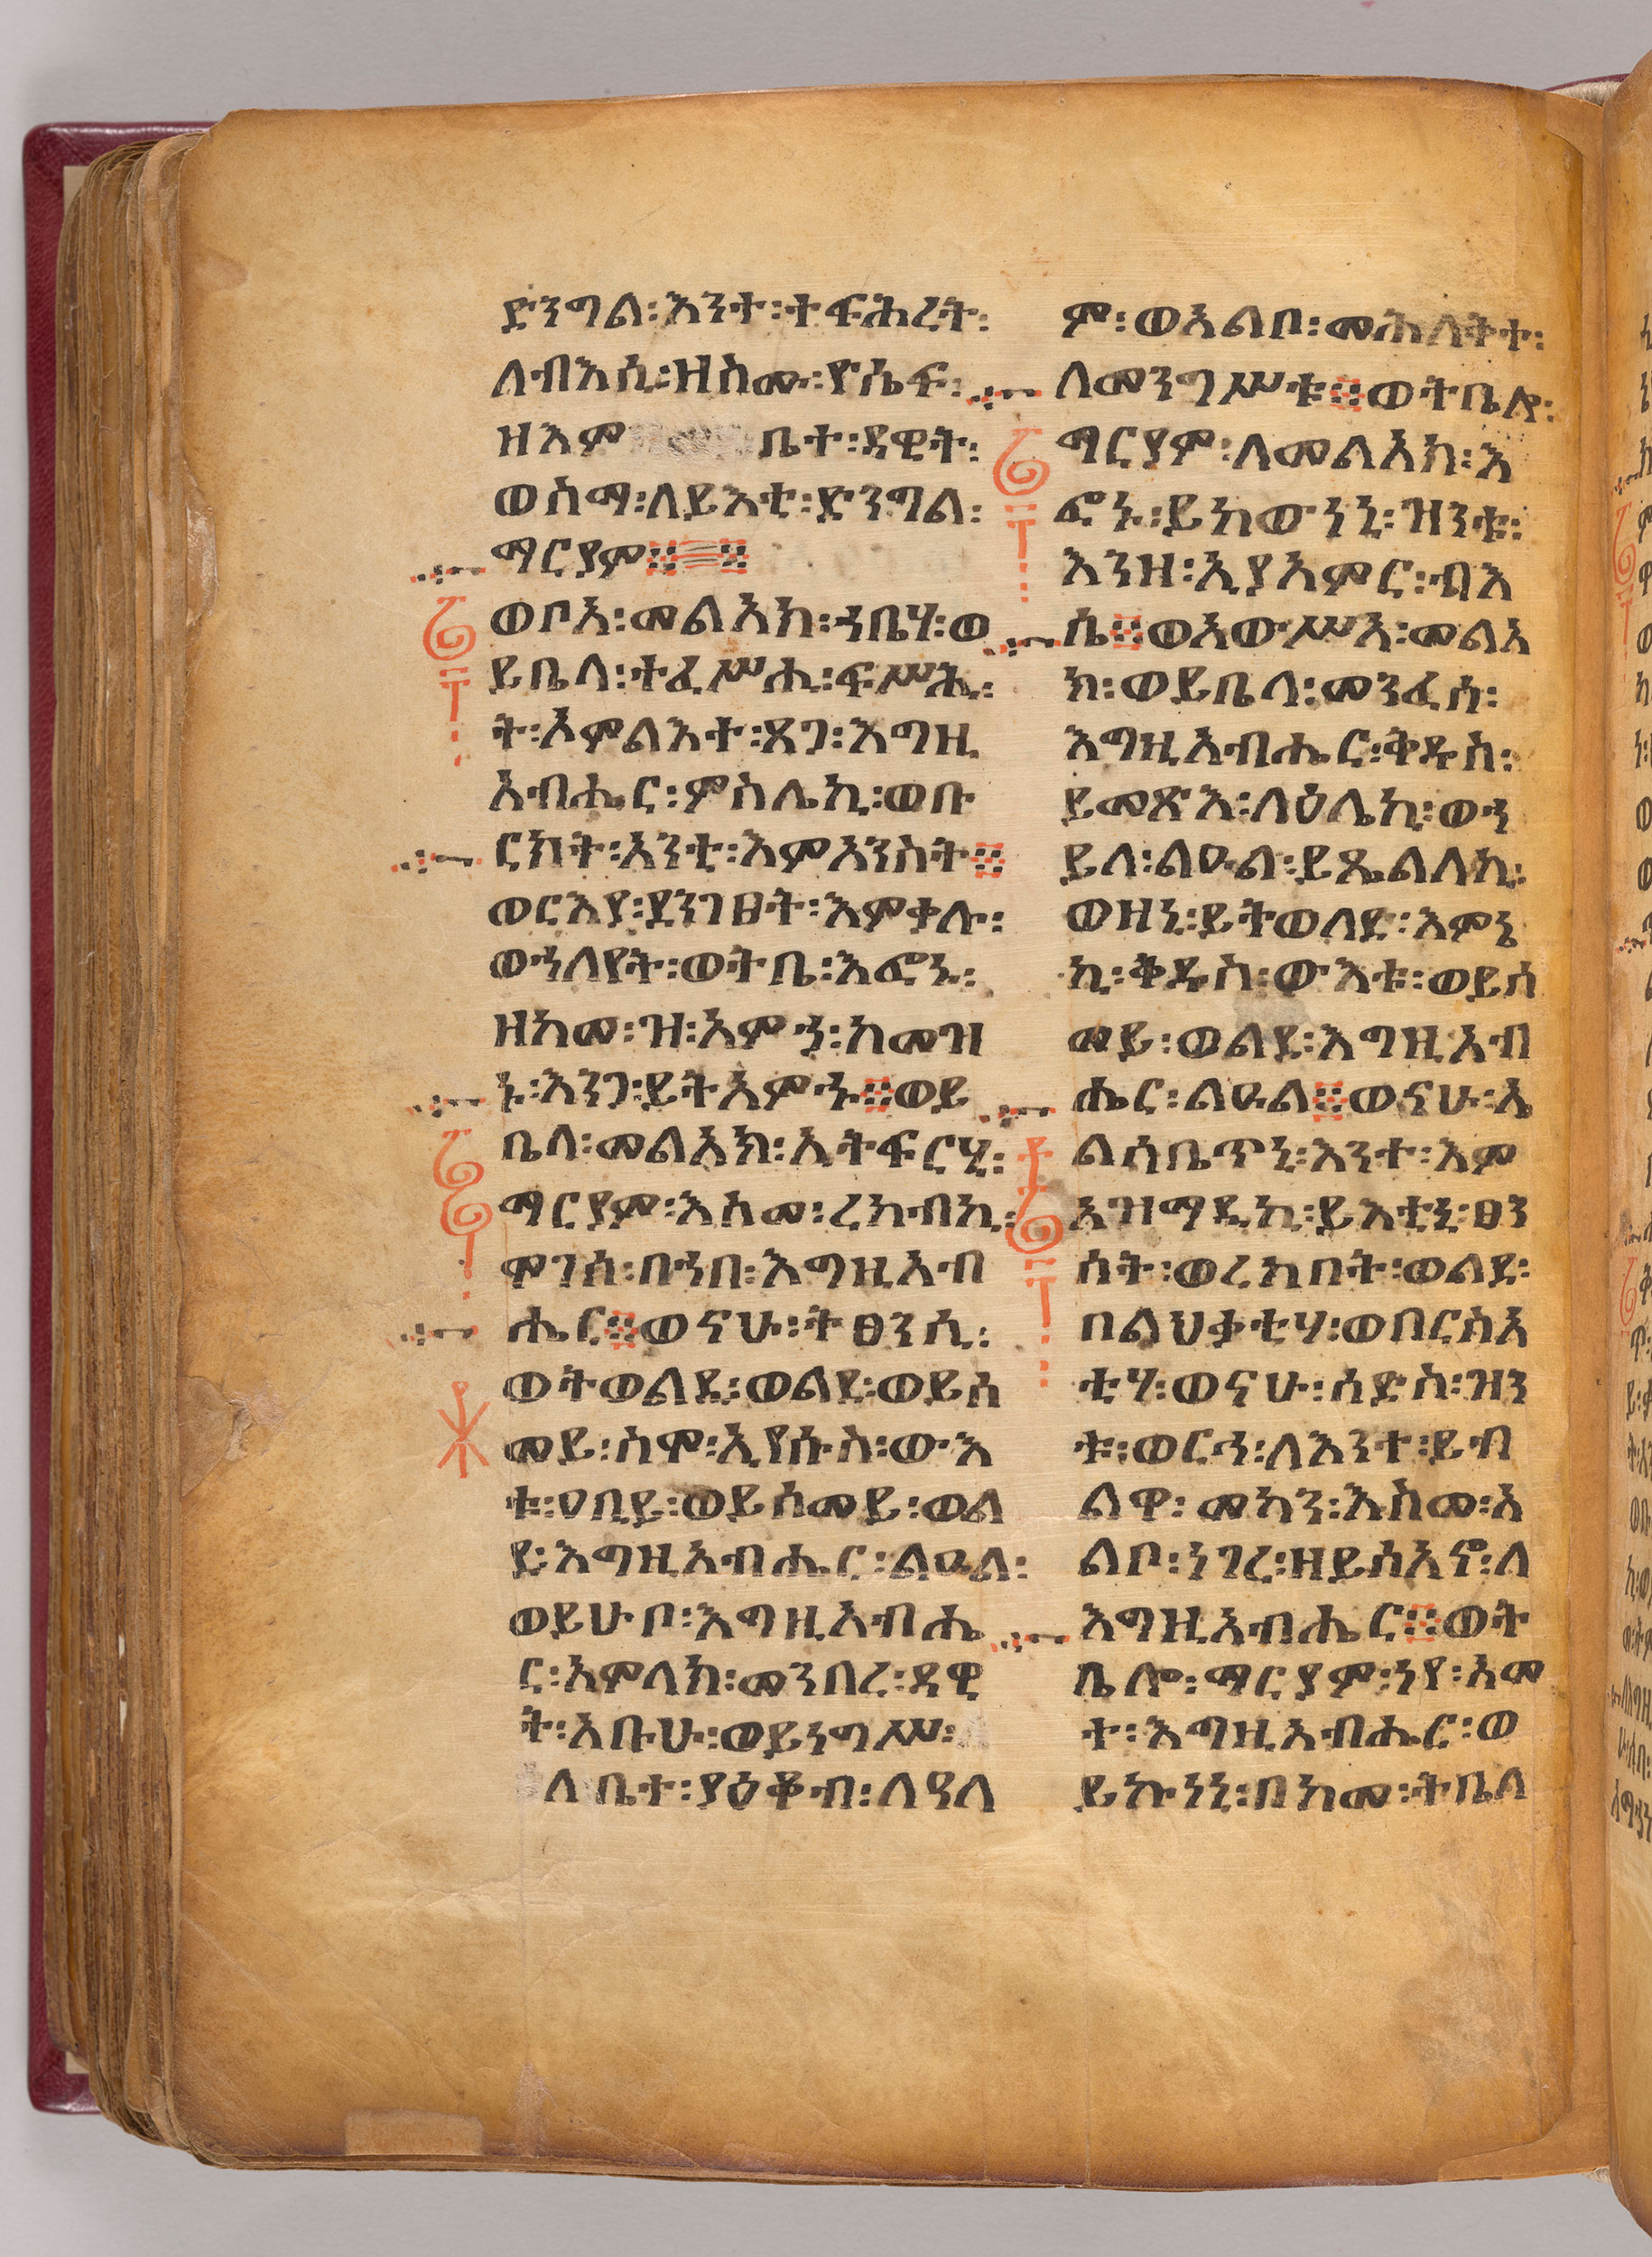 ድንግል፡እንተ፡ተፍሕረት፡
ለብእሲ፡ዘስሙ፡ዮሴፍ፡
ዘእም ቤተ፡ዳዊት፡
ወስማ፡ለይእቲ፡ድንግል፡
ማርያም፨፨
ወቦአ፡መልአክ፡ኀቤሃ፡ወ
ይቤላ፡ተፈሥሒ፡ፍሥሕ
ት፡ኦምልእተ፡ጸጋ፡እግዚ
አብሔር፡ምስሌኪ፡ወቡ
ርክት፡አንቲ፡እምአንስት፨
ወርእያ፡ደንገፀት፡እምቃሉ፡
ወኀለየት፡ወትቤ፡እፎኑ፡
ዘከመ፡ዝ፡አምኀ፡ከመዝ
ኑ፡እንጋ፡ይትአምኁ፨ወይ
ቤላ፡መልአክ፡ኢትፍርሂ፡
ማርያም፡እስመ፡ረከብኪ፡
ሞገሰ፡በኀበ፡እግዚአብ
ሔር፨ወናሁ፡ትፀንሲ፡
ወትወልዲ፡ወልደ፡ወይሰ
መይ፡ስሞ፡ኢየሱስ፡ውእ
ቱ፡ዐቢይ፡ወይሰመይ፡ወል
ደ፡እግዚአብሔር፡ልዑል፡
ወይሁቦ፡እግዚአብሔ
ር፡አምላክ፡መንበረ፡ዳዊ
ት፡አቡሁ፡ወይነግሥ፡
ለቤተ፡ያዕቆብ፡ለዓለ
ም፡ወአልቦ፡መሕለቅተ፡
ለመንግሥቱ፨ወትቤሎ፡
ማርያም፡ለመልአክ፡እ
ፎኑ፡ይከውነኒ፡ዝንቱ፡
እንዘ፡ኢያአምር፡ብእ
ሴ፨ወአውሥአ፡መልአ
ክ፡ወይቤላ፡መንፈሰ፡
እግዚአብሔር፡ቅዱስ፡
ይመጽእ፡ላዕሌኪ፡ወኀ
ይለ፡ልዑል፡ይጼልለኪ፡
ወዘኒ፡ይትወለድ፡እምኔ
ኪ፡ቅዱስ፡ውእቱ፡ወይሰ
መይ፡ወልደ፡እግዚአብ
ሔር፡ልዑል፨ወናሁ፡ኤ
ልሳቤጥኒ፡እንተ፡እም
አዝማዲኪ፡ይእቲኒ፡ፀን
ሰት፡ወረከበት፡ወልደ፡
በልህቃቲሃ፡ወበርስአ
ቲሃ፡ወናሁ፡ሳድስ፡ዝን
ቱ፡ወርኅ፡ለእንተ፡ይብ
ልዋ፡መካን፡እስመ፡አ
ልቦ፡ነገረ፡ዘይሰአኖ፡ለ
እግዚአብሔር፨ወት
ቤሎ፡ማርያም፡ነየ፡አመ
ተ፡እግዚአብሔር፡ወ
ይኩነኒ፡በከመ፡ትቤለ